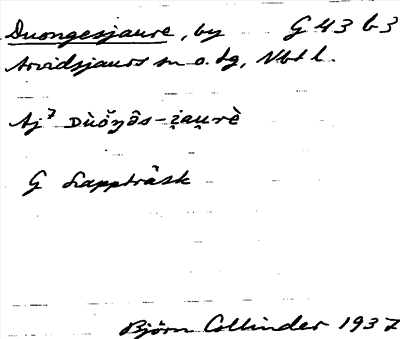 Duongesjaure, by G 43 b 3
Arvidsjaurs sn o. tg, Nbt l.
Aj⁷ Dùŏŋâs-i̯au̯rè
G Lappträsk
Björn Collinder 1937